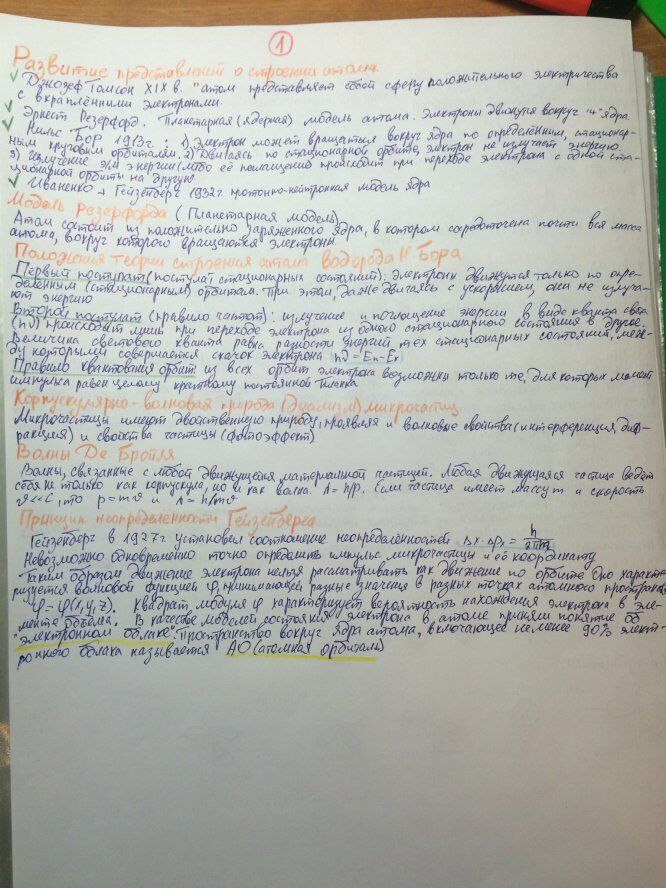 1
Развитие представлений о строении атома
Джозеф Томсон XIX в. "атом представляет собой сферу положительного электричества
с вкраплёнными электронами.
Эрнест Резерфорд. Планетарная (ядерная) модель атома. Электроны движутся вокруг "+" ядра
Нильс Бор 1913г: 1) Электрон может вращаться вокруг ядра по определённым, стационар-
ным круговым орбиталям. 2) Двигаясь по стационарной орбите, электрон не излучает энергию.
3) излучение эл/м энергии (либо её поглащение происходит при переходе электрона с одной ста-
ционарной орбиты на другую
Иваненко + Гейзенберг 1932г протонно-нейтронная модель ядра
Модель Резерфорда (Планетарная модель)
Атом состоит из положительно заряженного ядра, в котором сосредоточена почти вся масса
атома, вокруг которого вращаются электроны.
Положения теории строения атома водорода Н. Бора
Первый постулат (постулат стационарных состояний): электроны движутся только по опре-
делённым (стационарным) орбитам. При этом, даже двигаясь с ускорением, они не излуча-
ют энергию
Второй постулат (правило частот): излучение и поглощение энергии в виде кванта света
(hν) происходит лишь при переходе электрона из одного стационарного состояния в другое.
Величина светового кванта равна разности энергий тех стационарных состояний, меж-
ду которыми совершается скачок электрона hν = En - Ek
Правило квантования орбит из всех орбит электрона возможны только те, для которых момент
импульса равен целому кратному постоянной Планка
Корпускулярно-волновая природа (дуализм) микрочастиц
Микрочастицы имеют двойственную природу, проявляя и волновые свойства (интерференция, диф-
ракция) и свойства частицы (фотоэффект)
Волны Де Бройля
Волны, связанные с любой движущейся материальной частицей. Любая движущаяся частица ведёт
себя не только как корпускула, но и как волна. λ = h/p. Если частица имеет массу m и скорость
υ<<c, то p = mυ и λ = h/mυ
Принцип неопределённости Гейзенберга
Гейзенберг в 1927г установил соотношение неопределенностей
Невозможно одновременно точно определить импульс микрочастицы и её координату
Таким образом движение электрона нельзя рассматривать как движение по орбите. Оно характе-
ризуется волновой функцией φ, принимающей разные значения в разных точках атомного пространства
φ = φ(x,y,z). Квадрат модуля φ характеризует вероятность нахождения электрона в эле-
менте объёма. В качестве модели состояния электрона в атоме приняли понятие об
"электронном облаке". Пространство вокруг ядра атома, включающее не менее 90% элект-
ронного облака называется АО (атомная орбиталь)